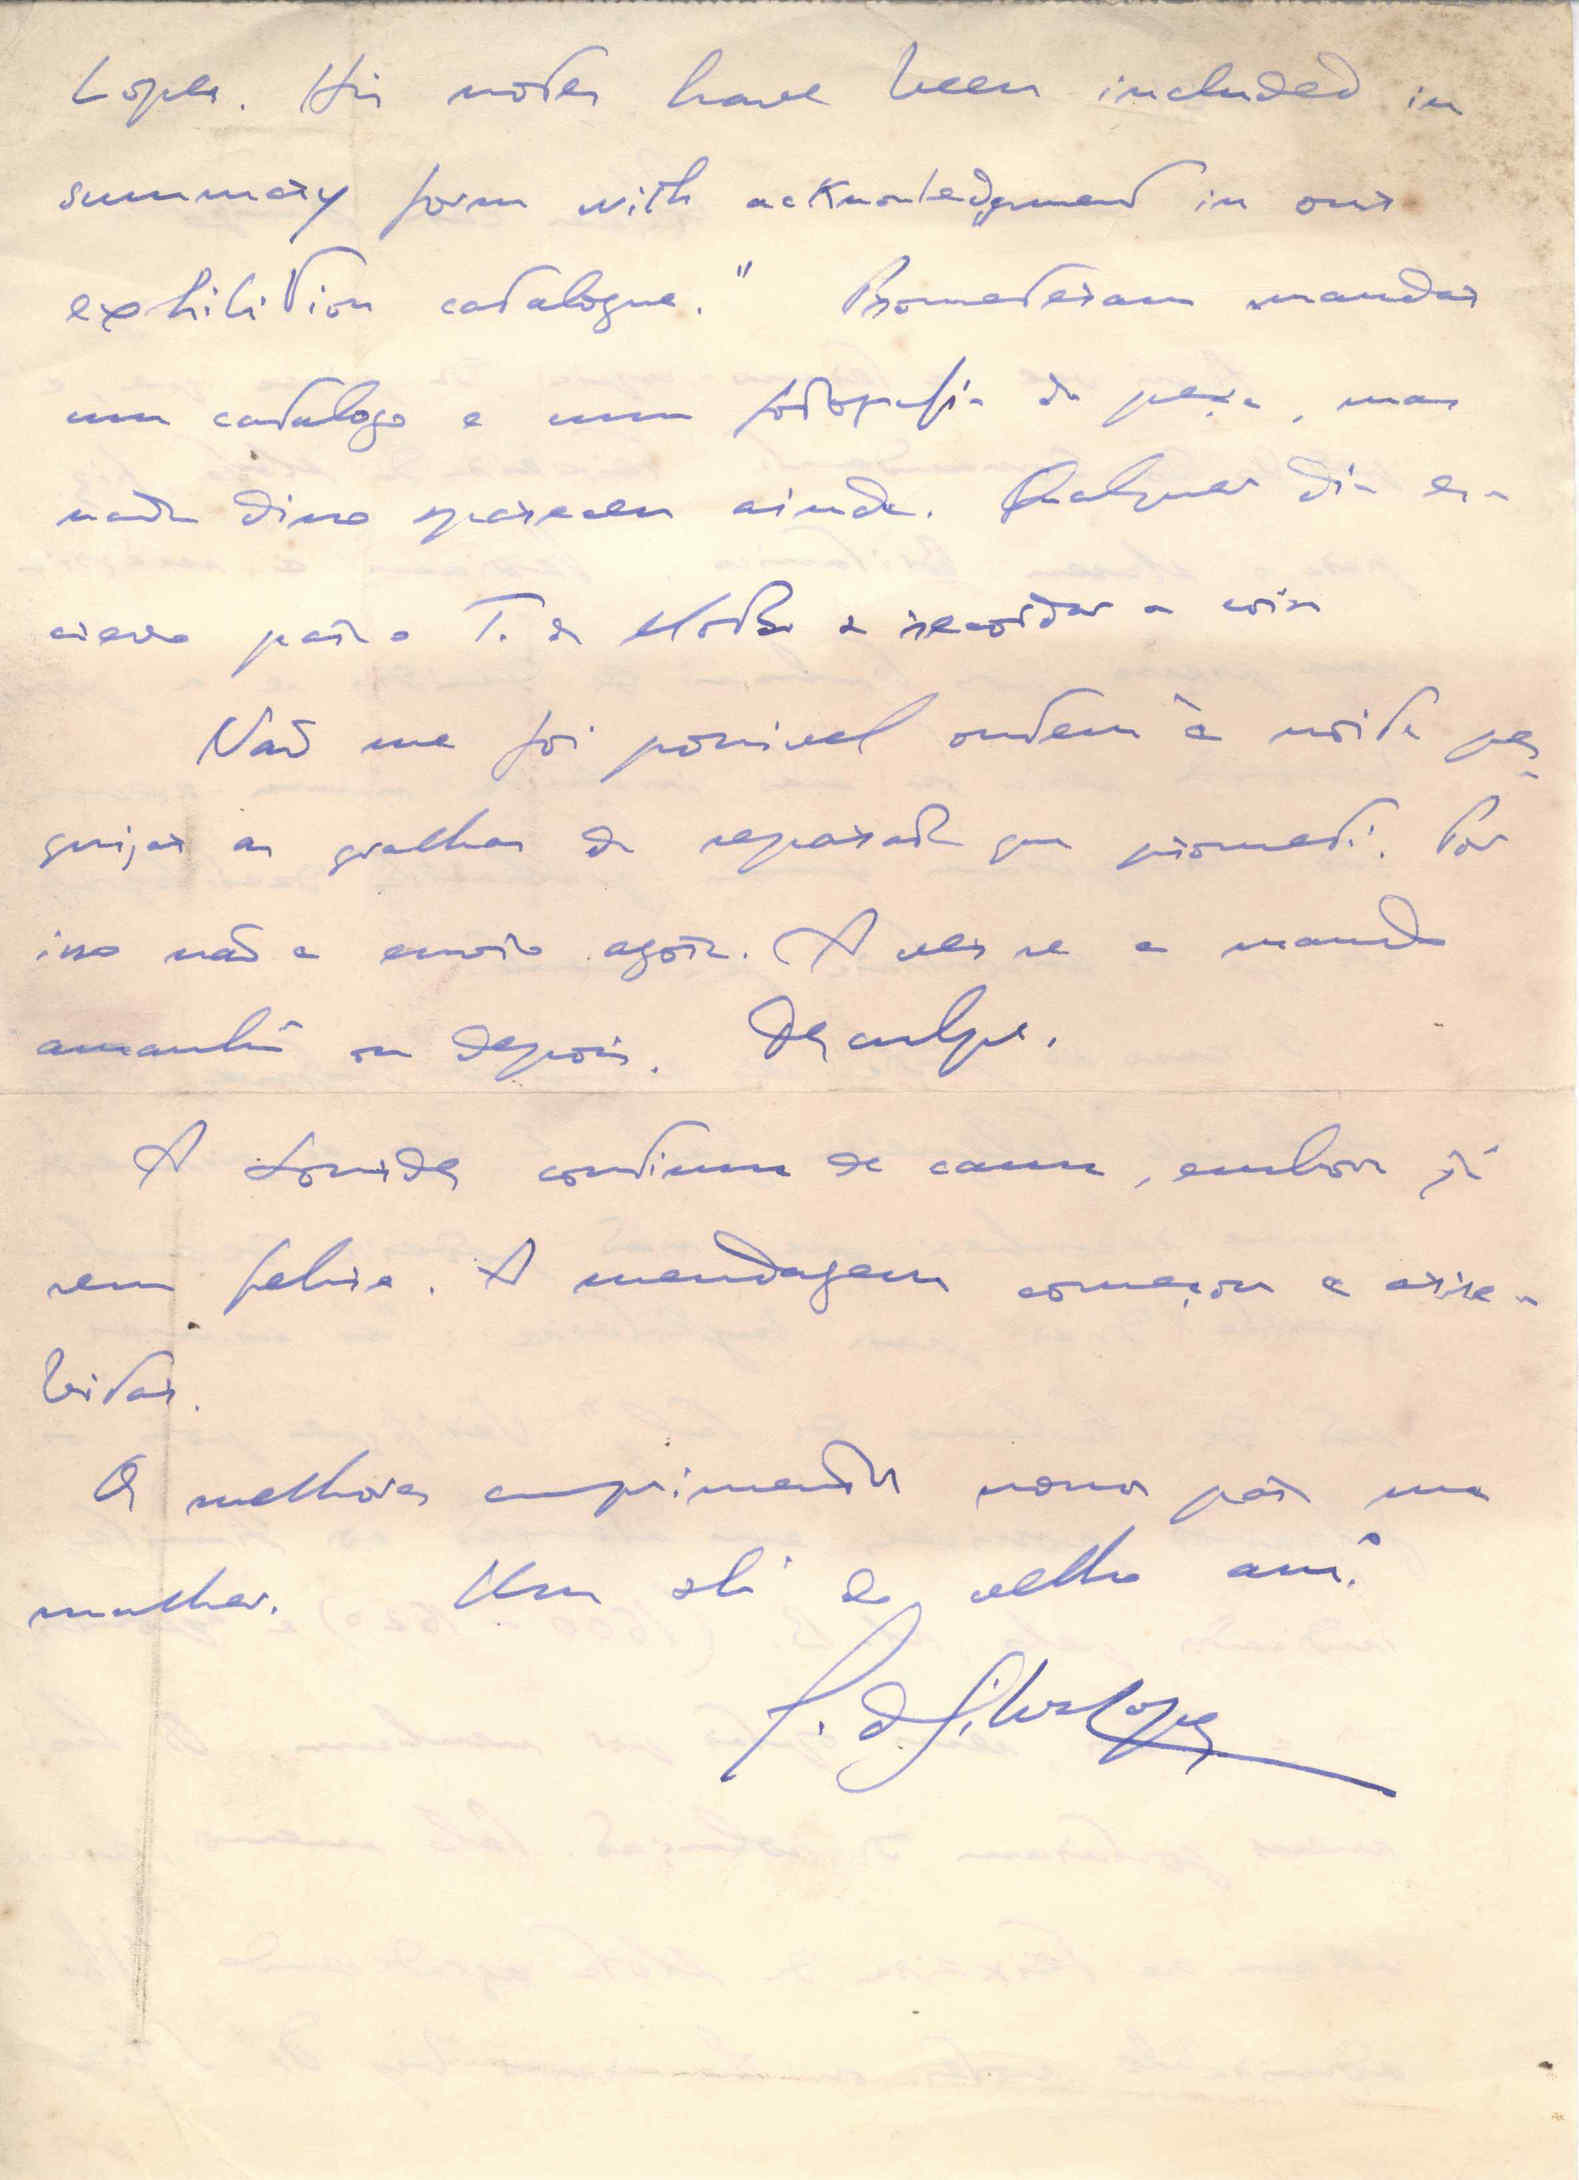 Lopes. His notes have been included in
summary form with acknowledgment in our
exhibition catalogue." Prometeram mandar
um catálogo e uma fotografia da peça, mas
nada disso apareceu ainda. Qualquer dia es-
crevo para o T. da Motta a recordar a coisa
Não me foi possível ontem à noite pes-
quisar as gralhas da separata que prometi. Por
isso não a envio agora. A ver se a mando
amanhã ou depois. Desculpe.
A Lourdes continua de cama, embora já
sem febre. A mendagem começou a arre-
bitar.
Os melhores cumprimentos nossos para sua
mulher. Um do velho am.º
F. da Silva Lopes